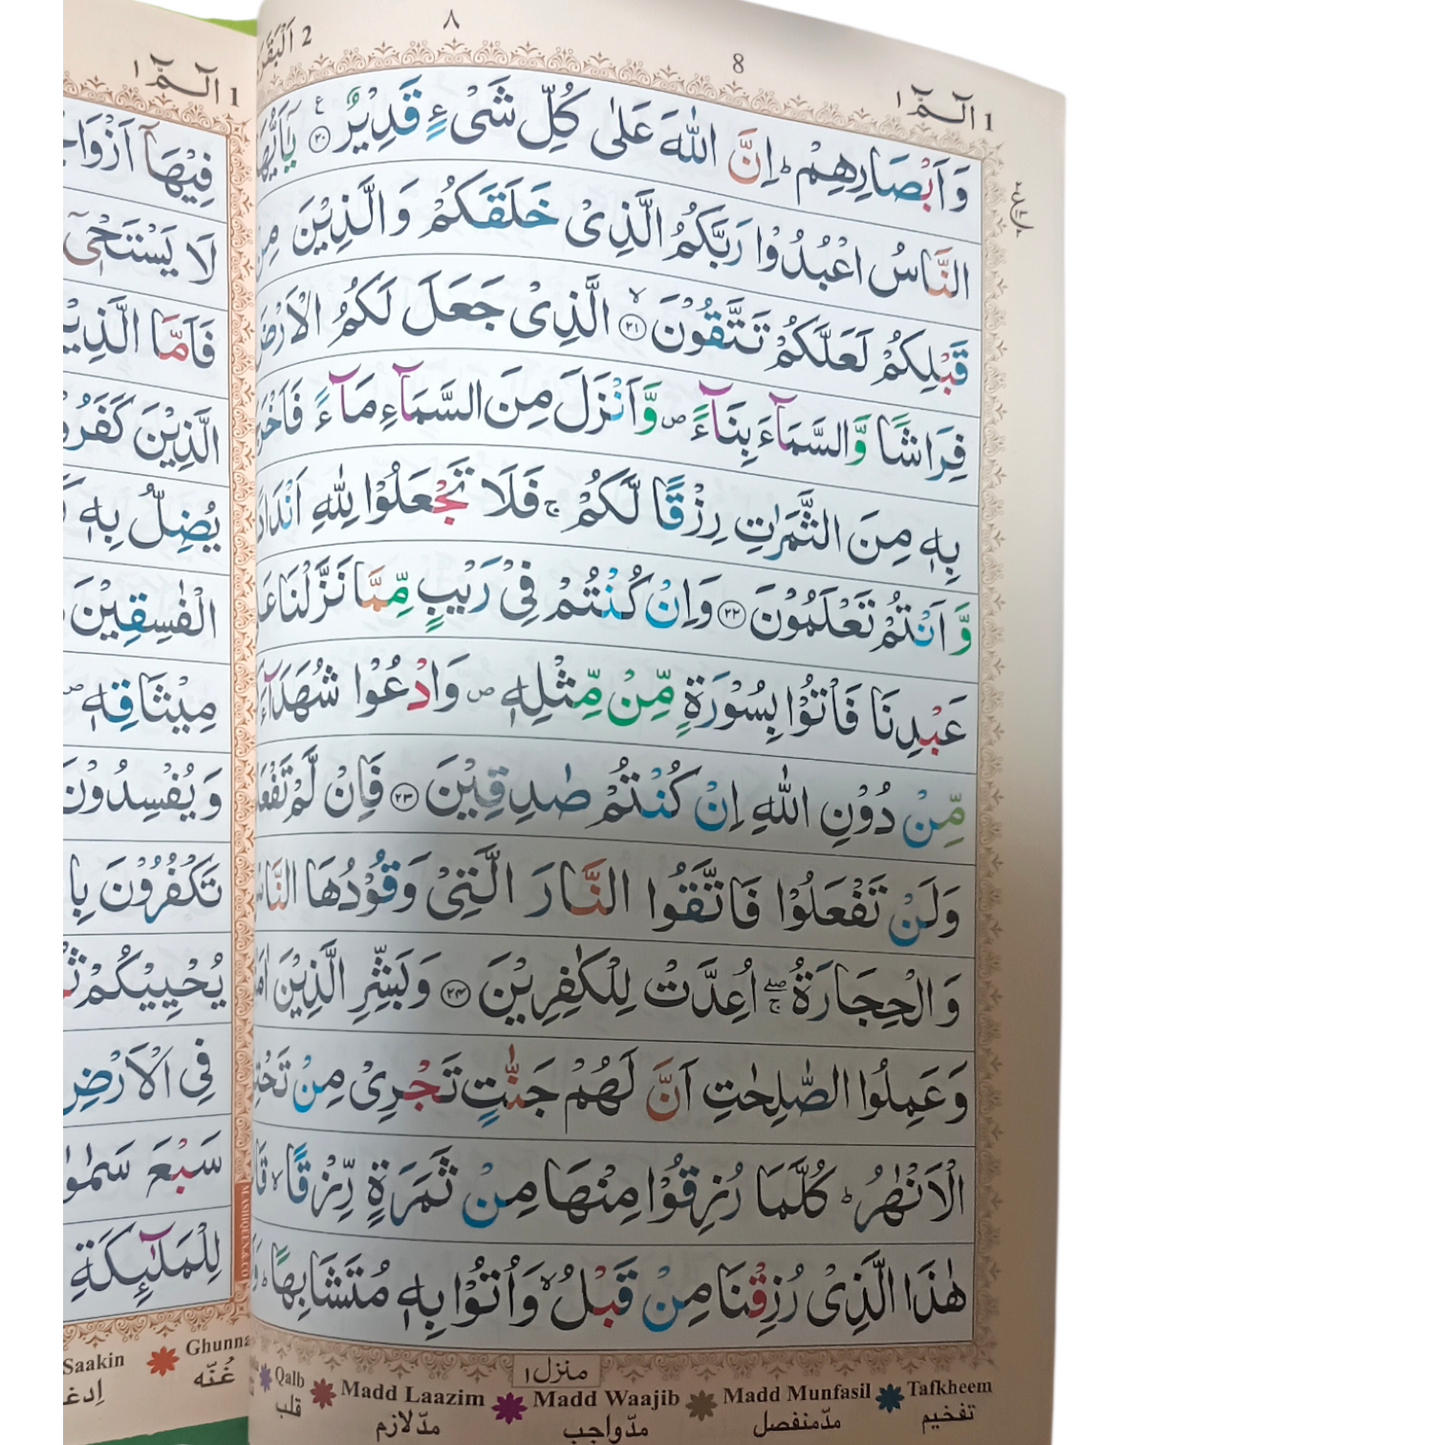 1 الٓـمّٓ ١
8
٨
2 اَلْبَقَرَ
وَاَبْصَارِهِمْ ؕ اِنَّ اللّٰهَ عَلٰى كُلِّ شَىْءٍ قَدِيْرٌ ۝٢٠ يٰٓاَيُّهَا
النَّاسُ اعْبُدُوْا رَبَّكُمُ الَّذِىْ خَلَقَكُمْ وَالَّذِيْنَ مِنْ
قَبْلِكُمْ لَعَلَّكُمْ تَتَّقُوْنَ ۝٢١ۙ الَّذِىْ جَعَلَ لَكُمُ الْاَرْضَ
فِرَاشًا وَّالسَّمَآءَ بِنَآءً ۖ وَّاَنْزَلَ مِنَ السَّمَآءِ مَآءً فَاَخْرَ
بِهٖ مِنَ الثَّمَرٰتِ رِزْقًا لَّكُمْ ۚ فَلَا تَجْعَلُوْا لِلّٰهِ اَنْدَادً
وَّاَنْتُمْ تَعْلَمُوْنَ ۝٢٢ وَاِنْ كُنْتُمْ فِىْ رَيْبٍ مِّمَّا نَزَّلْنَا عَ
عَبْدِنَا فَاْتُوْا بِسُوْرَةٍ مِّنْ مِّثْلِهٖ ۖ وَادْعُوْا شُهَدَآءَ
مِّنْ دُوْنِ اللّٰهِ اِنْ كُنْتُمْ صٰدِقِيْنَ ۝٢٣ فَاِنْ لَّمْ تَفْعَ
وَلَنْ تَفْعَلُوْا فَاتَّقُوا النَّارَ الَّتِىْ وَقُوْدُهَا النَّاسُ
وَالْحِجَارَةُ ۖۚ اُعِدَّتْ لِلْكٰفِرِيْنَ ۝٢٤ وَبَشِّرِ الَّذِيْنَ اٰمَ
وَعَمِلُوا الصّٰلِحٰتِ اَنَّ لَهُمْ جَنّٰتٍ تَجْرِىْ مِنْ تَحْتِ
الْاَنْهٰرُ ؕ كُلَّمَا رُزِقُوْا مِنْهَا مِنْ ثَمَرَةٍ رِّزْقًا ۙ قَا
هٰذَا الَّذِىْ رُزِقْنَا مِنْ قَبْلُ ۙ وَاُتُوْا بِهٖ مُتَشَابِهًا ؕ وَ
منزل ١
Qalb قلب
Madd Laazim مدّ لازم
Madd Waajib مدّ واجب
Madd Munfasil مدّ منفصل
Tafkheem تفخيم
1 الٓـمّٓ ١
فِيْهَآ اَزْوَا
لَا يَسْتَحْىٖٓ
فَاَمَّا الَّذِيْ
الَّذِيْنَ كَفَرُوْ
يُضِلُّ بِهٖ
الْفٰسِقِيْنَ
مِيْثَاقِهٖ ۖ
وَيُفْسِدُوْنَ
تَكْفُرُوْنَ بِا
يُحْيِيْكُمْ ثُ
فِى الْاَرْضِ
سَبْعَ سَمٰوٰ
لِلْمَلٰٓئِكَةِ
Saakin
Ghunna غُنّه